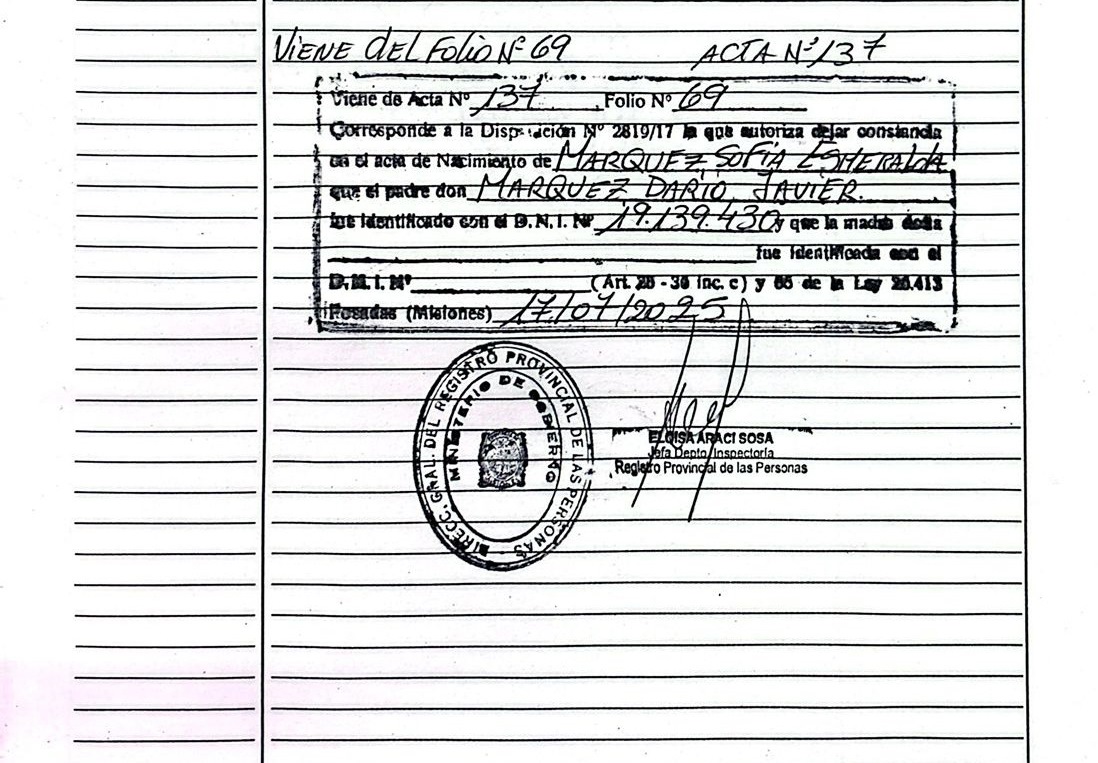 VIENE DEL FOLIO Nº 69 ACTA Nº 137
Viene de Acta Nº 137 Folio Nº 69
Corresponde a la Disposición Nº 2819/17 la que autoriza dejar constancia
en el acta de Nacimiento de MARQUEZ SOFÍA ESMERALDA
que el padre don MARQUEZ DARIO JAVIER.
fue identificado con el D.N.I. Nº 19.139.430, y que la madre doña
fue identificada con el
D.N.I. Nº (Art. 28 - 36 inc. c) y 65 de la Ley 26.413
Posadas (Misiones) 17/07/2025
DIRECC. GRAL. DEL REGISTRO PROVINCIAL DE LAS PERSONAS
MINISTERIO DE GOBIERNO
ELOISA ARACI SOSA
Jefa Depto. Inspectoría
Registro Provincial de las Personas